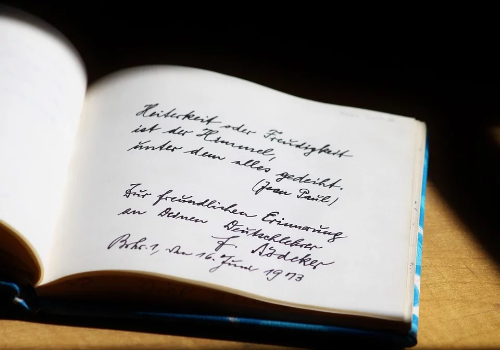 Heiterkeit oder Freudigkeit
ist der Himmel,
unter dem alles gedeiht.
(Jean Paul,)
Zur freundlichen Erinnerung
an Deinen Deutschlehrer
F. Bödeker
den 16. Juni 1973